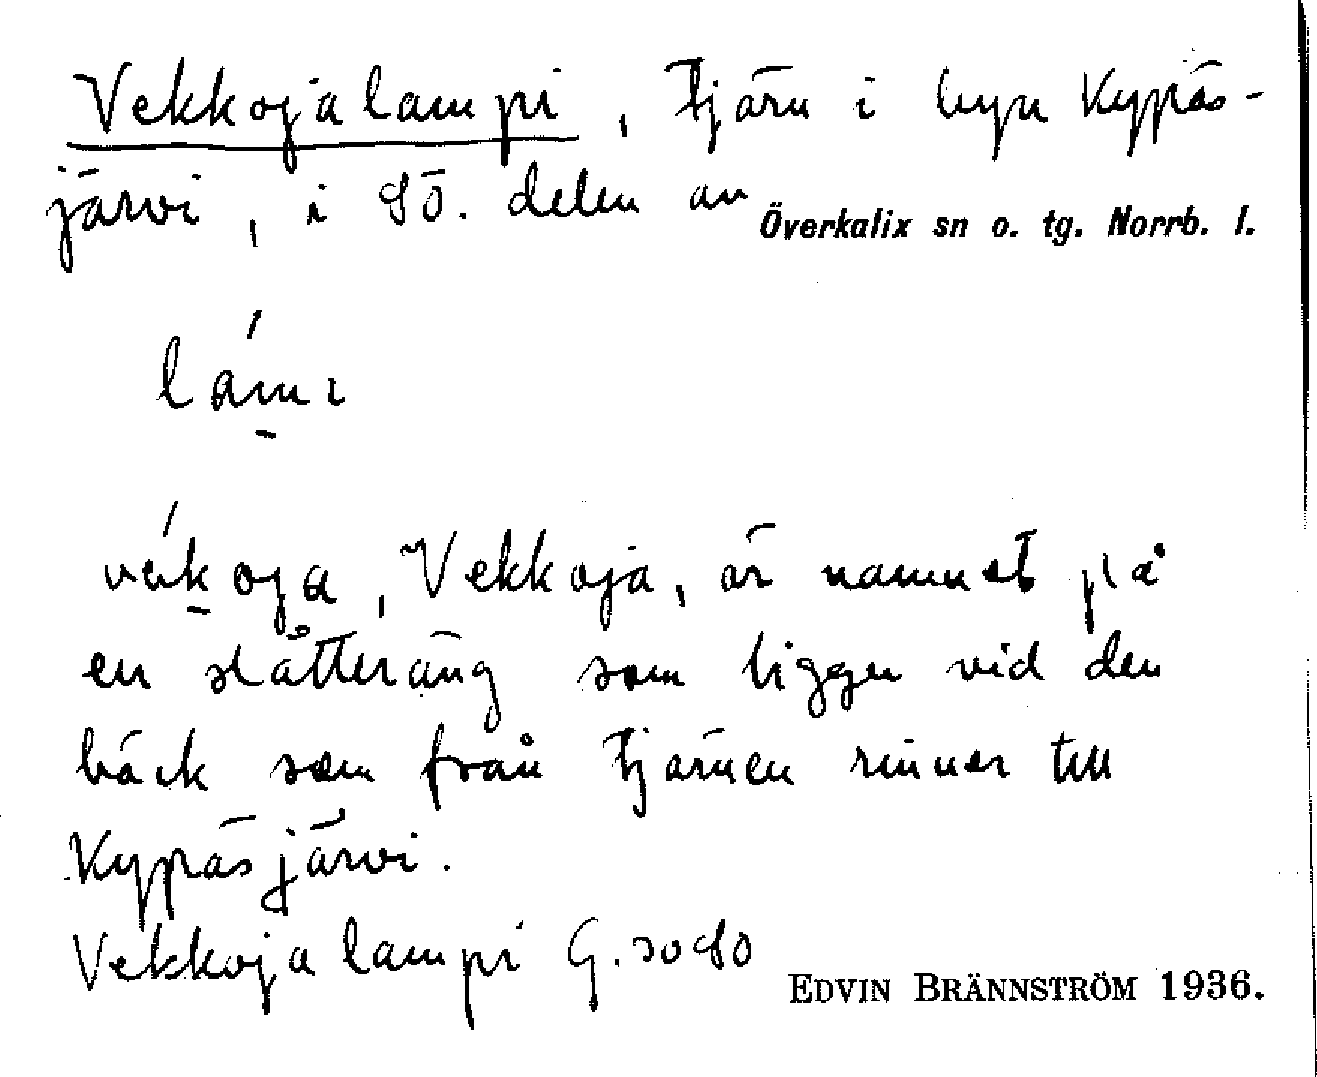 Vekkojalampi, tjärn i byn Kypäs-
järvi, i SÖ. delen av Överkalix sn o. tg. Norrb. l.
lámı
vék oja, Vekkoja, är namnet på
en slåtteräng som ligger vid den
bäck som från tjärnen rinner till
Kypäsjärvi.
Vekkojalampi G.
EDVIN BRÄNNSTRÖM 1936.